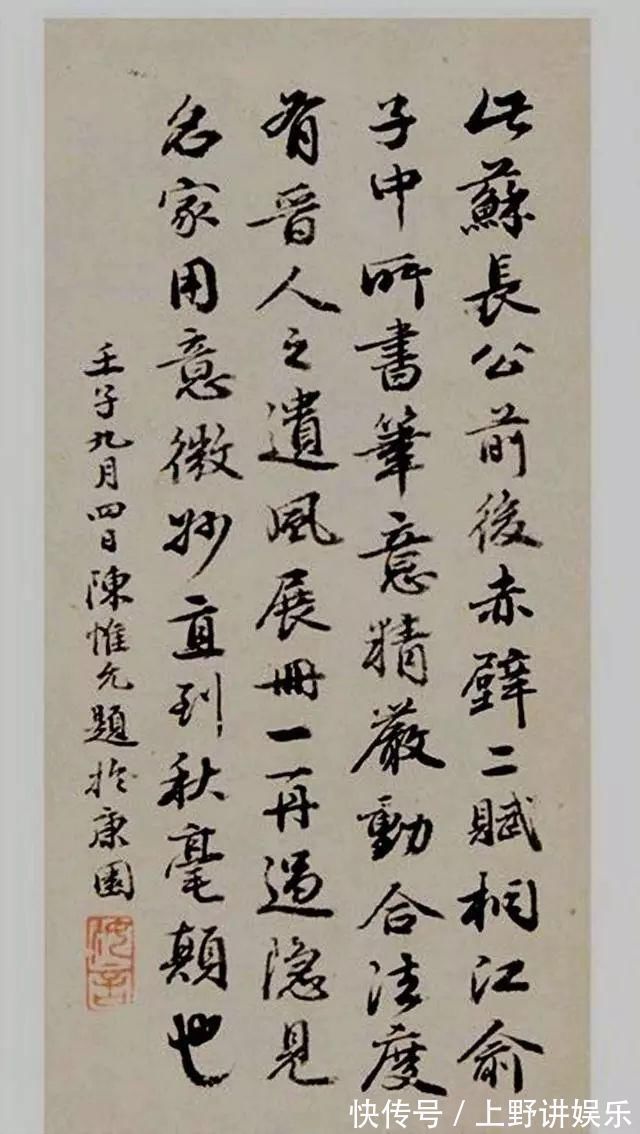 此蘇長公前後赤壁二賦桐江俞
子中所書筆意精嚴動合法度
有晉人之遺風展冊一再過隐見
名家用意微妙直到秋毫顛也
壬子九月四日陳惟允題於康園
快传号 / 上野讲娱乐